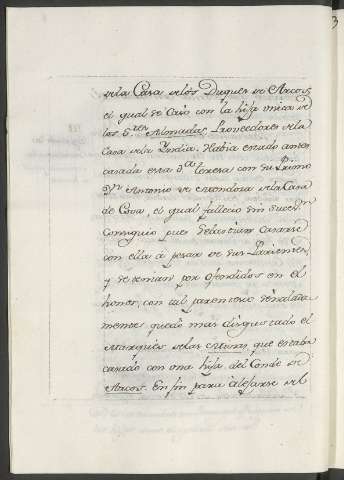 de la Casa de los Duques de Arcos,
el qual se Casó con la hija unica de
los S.res Almudas, Proveedores de la
Casa de la Yndia. Habia estado antes
casada esta D.a Teresa con su Primo
D.n Antonio de Mendoza de la Casa
de Cova, el qual fallecio sin suces.n
Consiguio pues casarse
con ella á pesar de sus Parientes
y se tenian por ofendidos en el
honor, con tal parentesco señalada
mente quedó mas disgustado el
Marques de las Minas, que estaba
casado con una hija del Conde de
Arcos. En fin para alejarse del
3